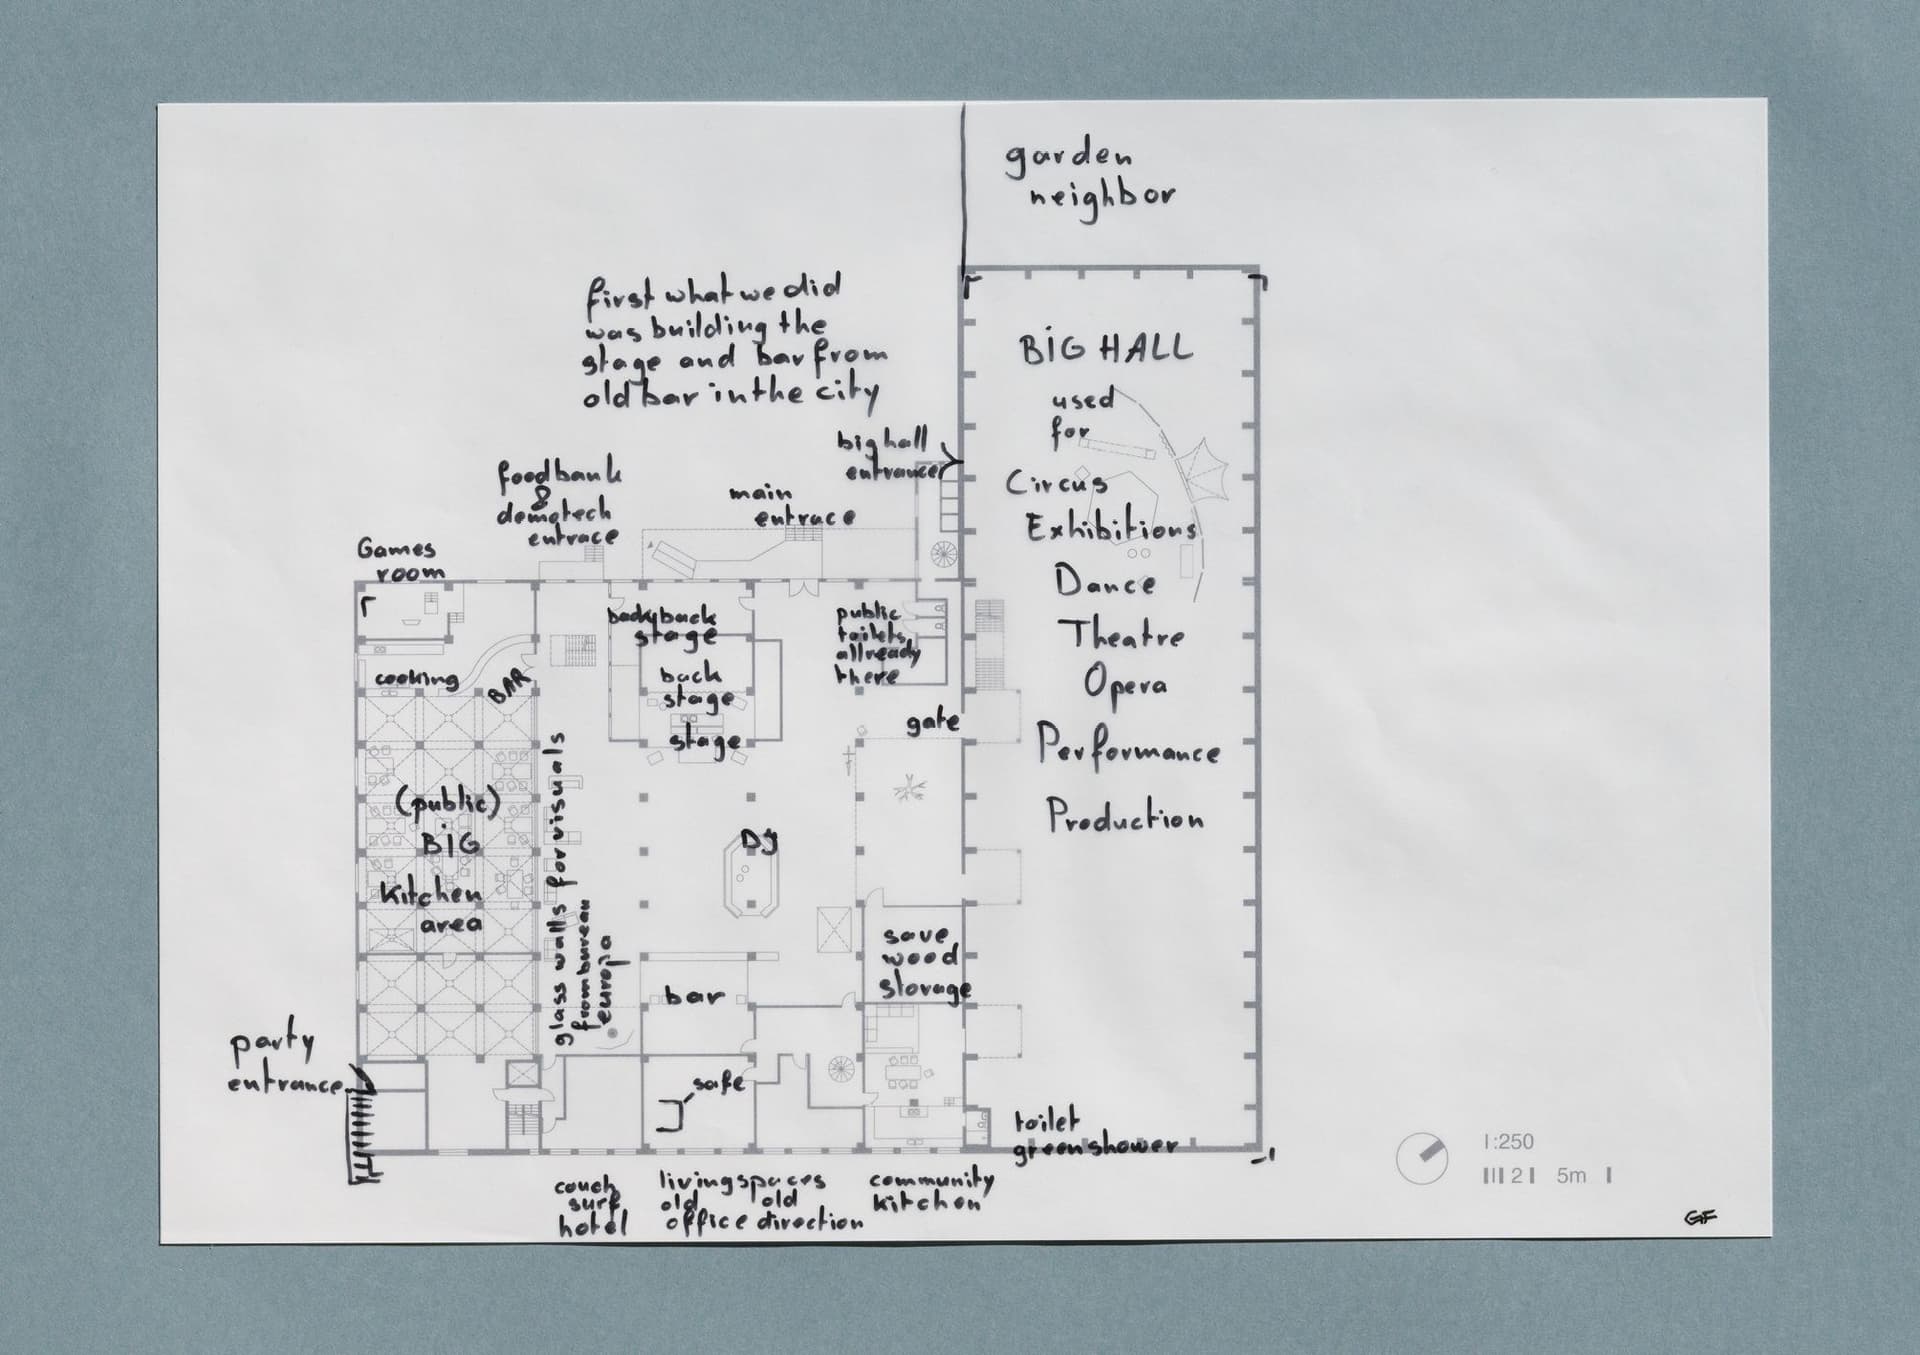 garden
neighbor
first what we did
was building the
stage and bar from
old bar in the city
big hall
entrance
foodbank
&
demotech
entrace
main
entrace
Games
room
BiG HALL
used
for
Circus
Exhibitions
Dance
Theatre
Opera
Performance
Production
backyback
stage
back
stage
stage
public
toilets
allready
there
gate
cooking
BAR
(public)
BiG
Kitchen
area
glass walls for visuals
from bureau
europa
DJ
bar
save
wood
storage
party
entrance
safe
toilet
greenshower
couch
surf
hotel
livingspaces
old old
office direction
community
kitchen
1:250
2 5m
GF